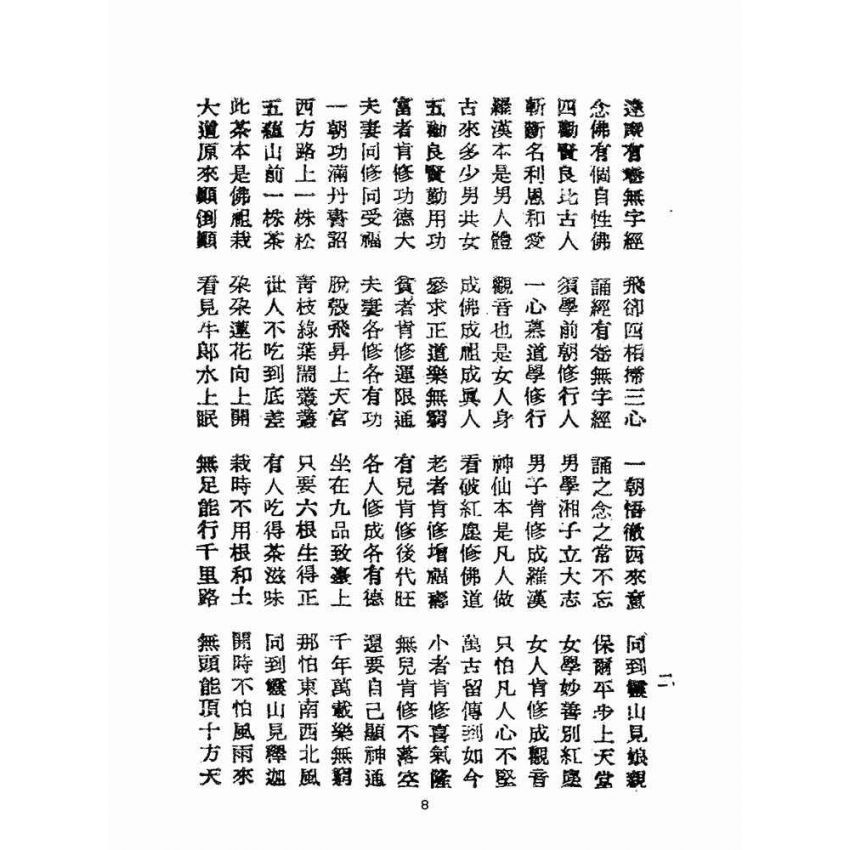 達摩有卷無字經 飛卻四相掃三心 一朝悟徹西來意 同到靈山見娘親
念佛有個自性佛 誦經有卷無字經 誦之念之常不忘 保爾平步上天堂
四勸賢良比古人 須學前朝修行人 男學湘子立大志 女學妙善別紅塵
斬斷名利恩和愛 一心慕道學修行 男子肯修成羅漢 女人肯修成觀音
羅漢本是男人體 觀音也是女人身 神仙本是凡人做 只怕凡人心不堅
古來多少男共女 成佛成祖成眞人 看破紅塵修佛道 萬古留傳到如今
五勸良賢勤用功 參求正道樂無窮 老者肯修增福壽 小者肯修喜氣隆
富者肯修功德大 貧者肯修運限通 有兒肯修後代旺 無兒肯修不落空
夫妻同修同受福 夫妻各修各有功 各人修成各有德 還要自己顯神通
一朝功滿丹書詔 脫殼飛昇上天宮 坐在九品致臺上 千年萬載樂無窮
西方路上一株松 青枝綠葉鬧叢叢 只要六根生得正 那怕東南西北風
五蘊山前一株茶 世人不吃到底差 有人吃得茶滋味 同到靈山見釋迦
此茶本是佛祖栽 朶朶蓮花向上開 栽時不用根和土 開時不怕風雨來
大道原來顚倒顚 看見牛郎水上眠 無足能行千里路 無頭能頂十方天
二
8